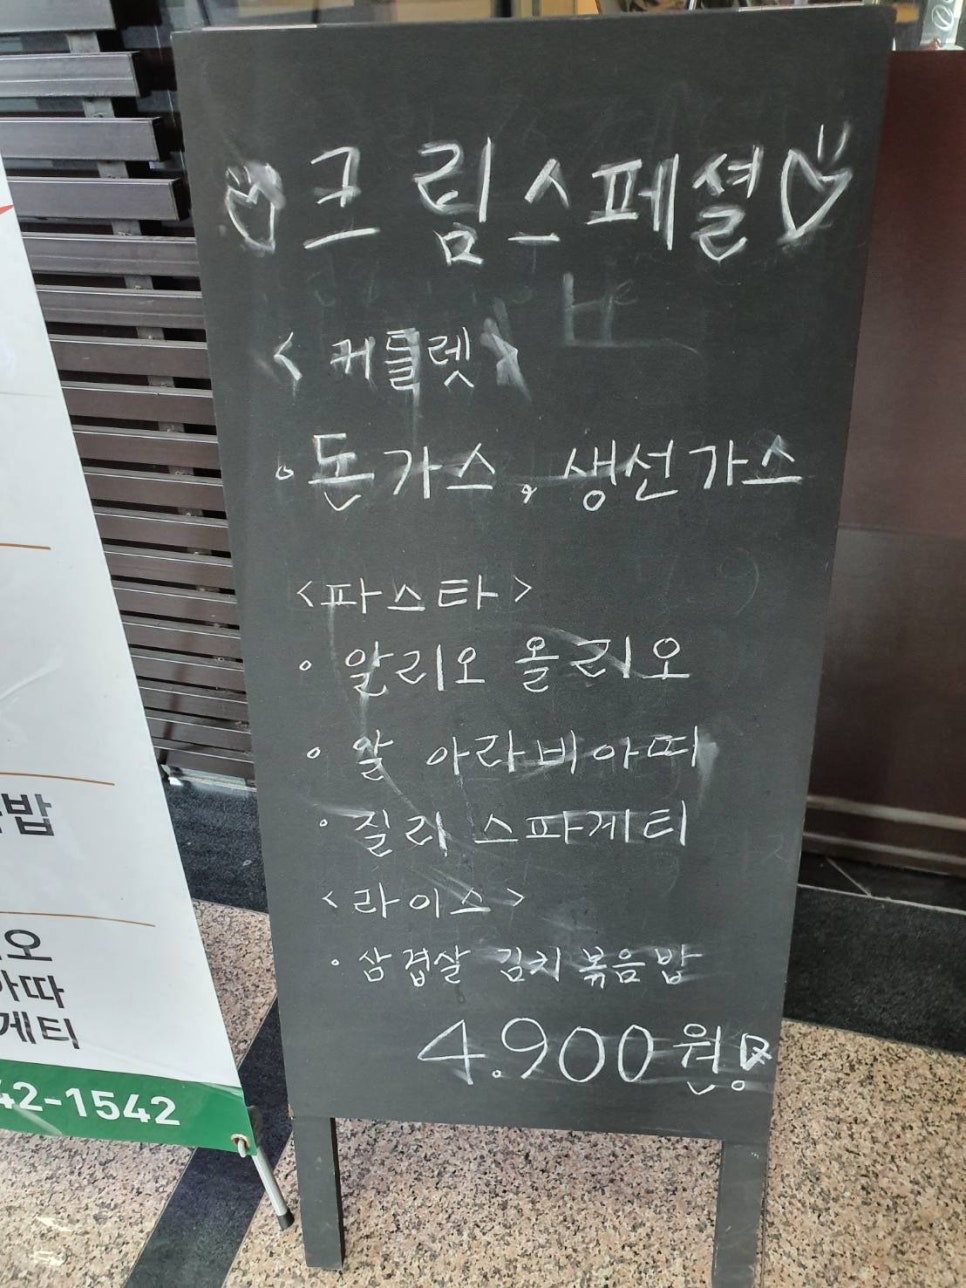 크림스페셜
<커틀렛>
· 돈가스, 생선가스
<파스타>
· 알리오 올리오
· 알 아라비아따
· 칠리 스파게티
<라이스>
· 삼겹살 김치볶음밥
4.900원!
밥
오
아따
게티
42-1542